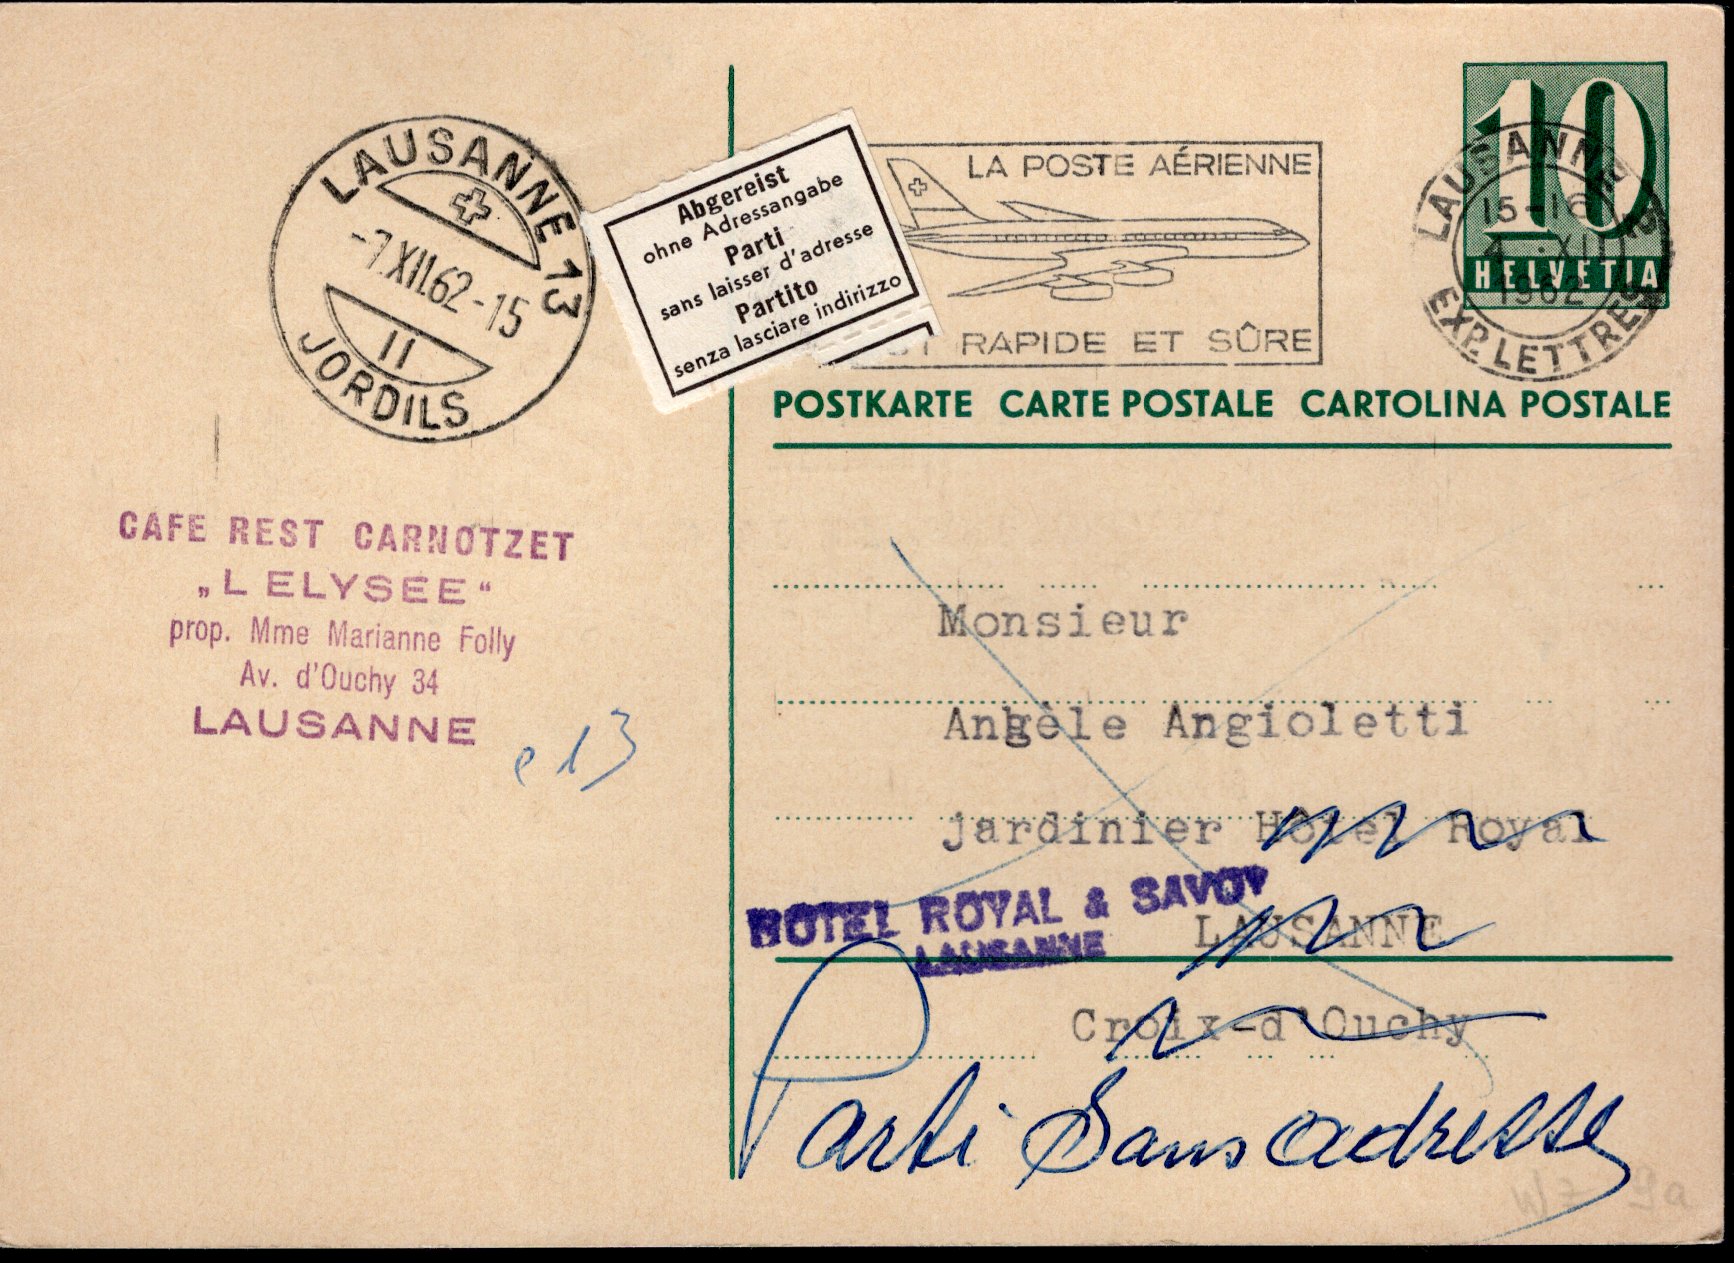 LAUSANNE 13
-7.XII.62-15
11
JORDILS
Abgereist
ohne Adressangabe
Parti
sans laisser d'adresse
Partito
senza lasciare indirizzo
LA POSTE AÉRIENNE
RAPIDE ET SÛRE
10
HELVETIA
LAUSANNE
15-16
4.XII
1962
EXP. LETTRES
POSTKARTE CARTE POSTALE CARTOLINA POSTALE
CAFE REST CARNOTZET
„L ELYSEE“
prop. Mme Marianne Folly
Av. d'Ouchy 34
LAUSANNE
e 13
Monsieur
Angèle Angioletti
jardinier Hôtel Royal
HOTEL ROYAL & SAVOY
LAUSANNE
LAUSANNE
Croix-d'Ouchy
Parti Sans adresse